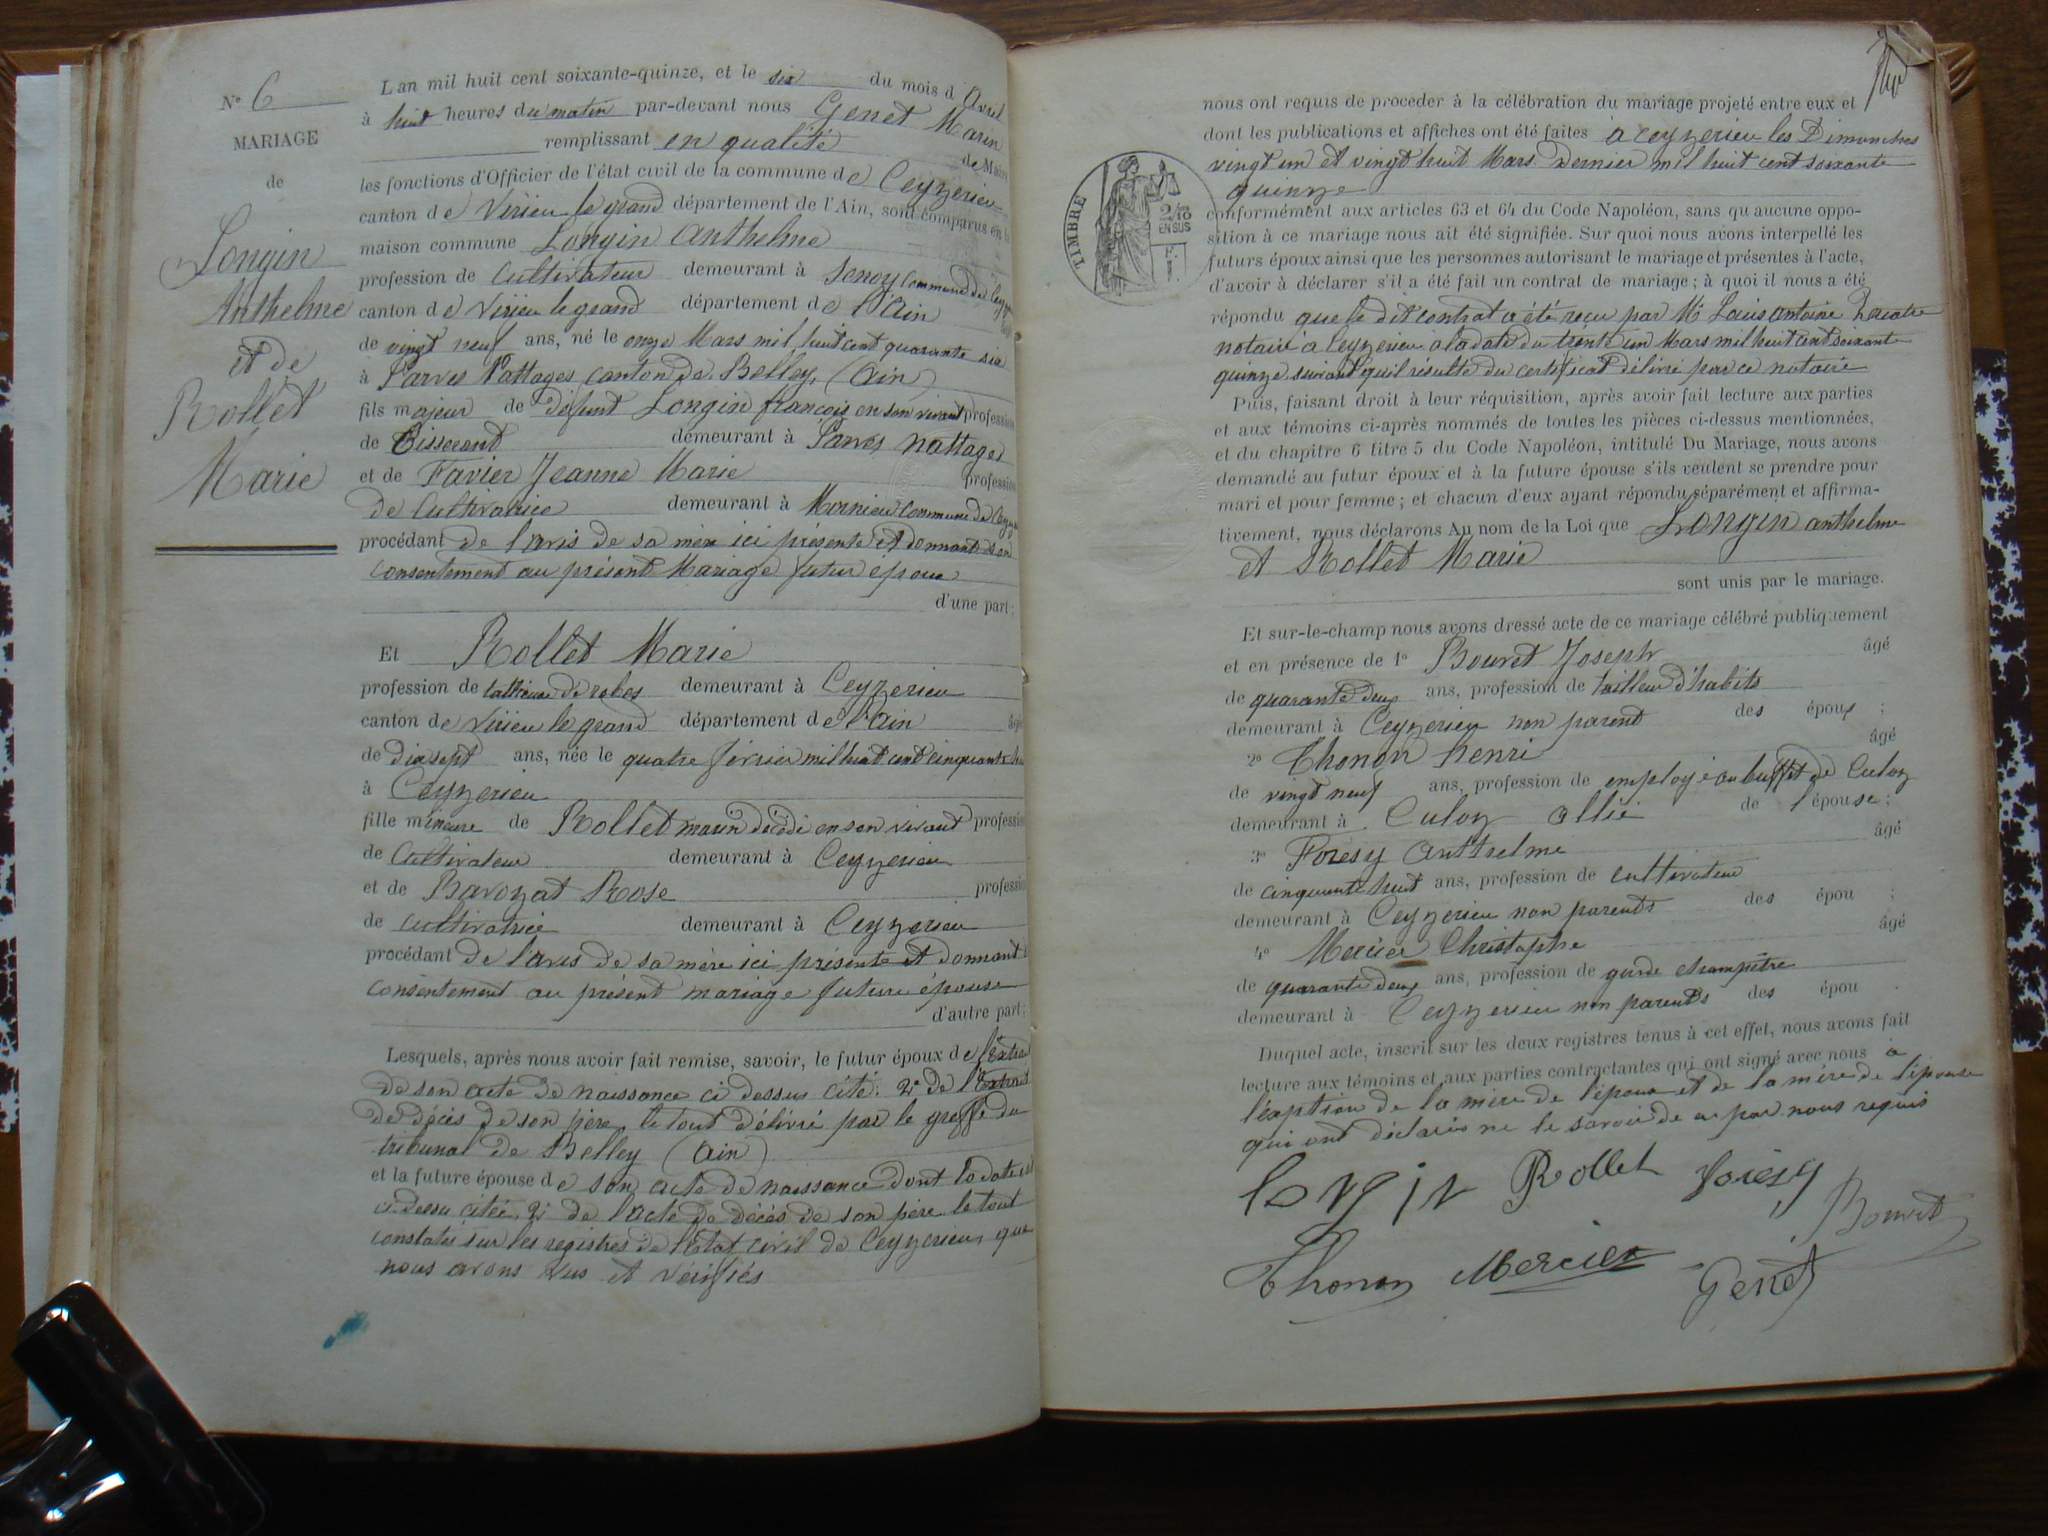 N° 6
MARIAGE
de
Longin
Anthelme
et de
Rollet
Marie
L'an mil huit cent soixante-quinze, et le six du mois d'Avril
à huit heures du matin par-devant nous Genet Marin
remplissant en qualité de Maire
les fonctions d'Officier de l'état civil de la commune de Ceyzerieu
canton de Virieu le grand département de l'Ain, sont comparus en la
maison commune Longin Anthelme
profession de Cultivateur demeurant à Senoy Commune de
canton de Virieu le grand département de l'Ain
de vingt neuf ans, né le onze Mars mil huit cent quarante six
à Parves Nattages canton de Belley, (Ain)
fils majeur de défunt Longin françois en son vivant profession
de Tisserand demeurant à Parves Nattages
et de Favier Jeanne Marie profession
de Cultivatrice demeurant à Commune de
procédant de l'avis de sa mère ici présente et donnant son
consentement au présent Mariage futur époux
d'une part;
Et Rollet Marie
profession de tailleuse de robes demeurant à Ceyzerieu
canton de Virieu le grand département de l'Ain âgée
de dix sept ans, née le quatre février mil huit cent cinquante
à Ceyzerieu
fille mineure de Rollet marin décédé en son vivant profession
de Cultivateur demeurant à Ceyzerieu
et de Bavozat Rose profession
de cultivatrice demeurant à Ceyzerieu
procédant de l'avis de sa mère ici présente et donnant
consentement au présent mariage future épouse
d'autre part;
Lesquels, après nous avoir fait remise, savoir, le futur époux de l'extrait
de son acte de naissance ci dessus cité. 2° de l'Extrait
de décès de son père, le tout délivré par le greffe du
tribunal de Belley (Ain)
et la future épouse de son acte de naissance dont la date est
ci dessu citée, 2° de l'acte de décès de son père le tout
constatés sur les registres de l'Etat civil de Ceyzerieu, que
nous avons vus et vérifiés
nous ont requis de procéder à la célébration du mariage projeté entre eux et
dont les publications et affiches ont été faites à Ceyzerieu les Dimanches
vingt un et vingt huit Mars dernier mil huit cent soixante
quinze
TIMBRE
2/10
EN SUS
conformément aux articles 63 et 64 du Code Napoléon, sans qu'aucune oppo-
sition à ce mariage nous ait été signifiée. Sur quoi nous avons interpellé les
futurs époux ainsi que les personnes autorisant le mariage et présentes à l'acte,
d'avoir à déclarer s'il a été fait un contrat de mariage; à quoi il nous a été
répondu que le dit contrat a été reçu par Me Louis Antoine
notaire à Ceyzerieu à la date du trente un Mars mil huit cent soixante
quinze suivant qu'il résulte du certificat délivré par ce notaire
Puis, faisant droit à leur réquisition, après avoir fait lecture aux parties
et aux témoins ci-après nommés de toutes les pièces ci-dessus mentionnées,
et du chapitre 6 titre 5 du Code Napoléon, intitulé Du Mariage, nous avons
demandé au futur époux et à la future épouse s'ils veulent se prendre pour
mari et pour femme; et chacun d'eux ayant répondu séparément et affirma-
tivement, nous déclarons Au nom de la Loi que Longin Anthelme
et Rollet Marie
sont unis par le mariage.
Et sur-le-champ nous avons dressé acte de ce mariage célébré publiquement
et en présence de 1° Bouvet Joseph âgé
de quarante deux ans, profession de tailleur d'habits
demeurant à Ceyzerieu non parent des époux;
2° Thonon henri âgé
de vingt neuf ans, profession de employé au buffet de Culoz
demeurant à Culoz allié de l'épouse;
3° Foresy Anthelme âgé
de cinquante huit ans, profession de cultivateur
demeurant à Ceyzerieu non parents des épou ;
4° Mercier Christophe âgé
de quarante deux ans, profession de garde champêtre
demeurant à Ceyzerieu non parents des épou .
Duquel acte, inscrit sur les deux registres tenus à cet effet, nous avons fait
lecture aux témoins et aux parties contractantes qui ont signé avec nous à
l'exeption de la mère de l'époux et de la mère de l'épouse
qui ont déclaré ne le savoir de ce par nous requis
longin Rollet foresy
Bouvet
Thonon Mercier Genet